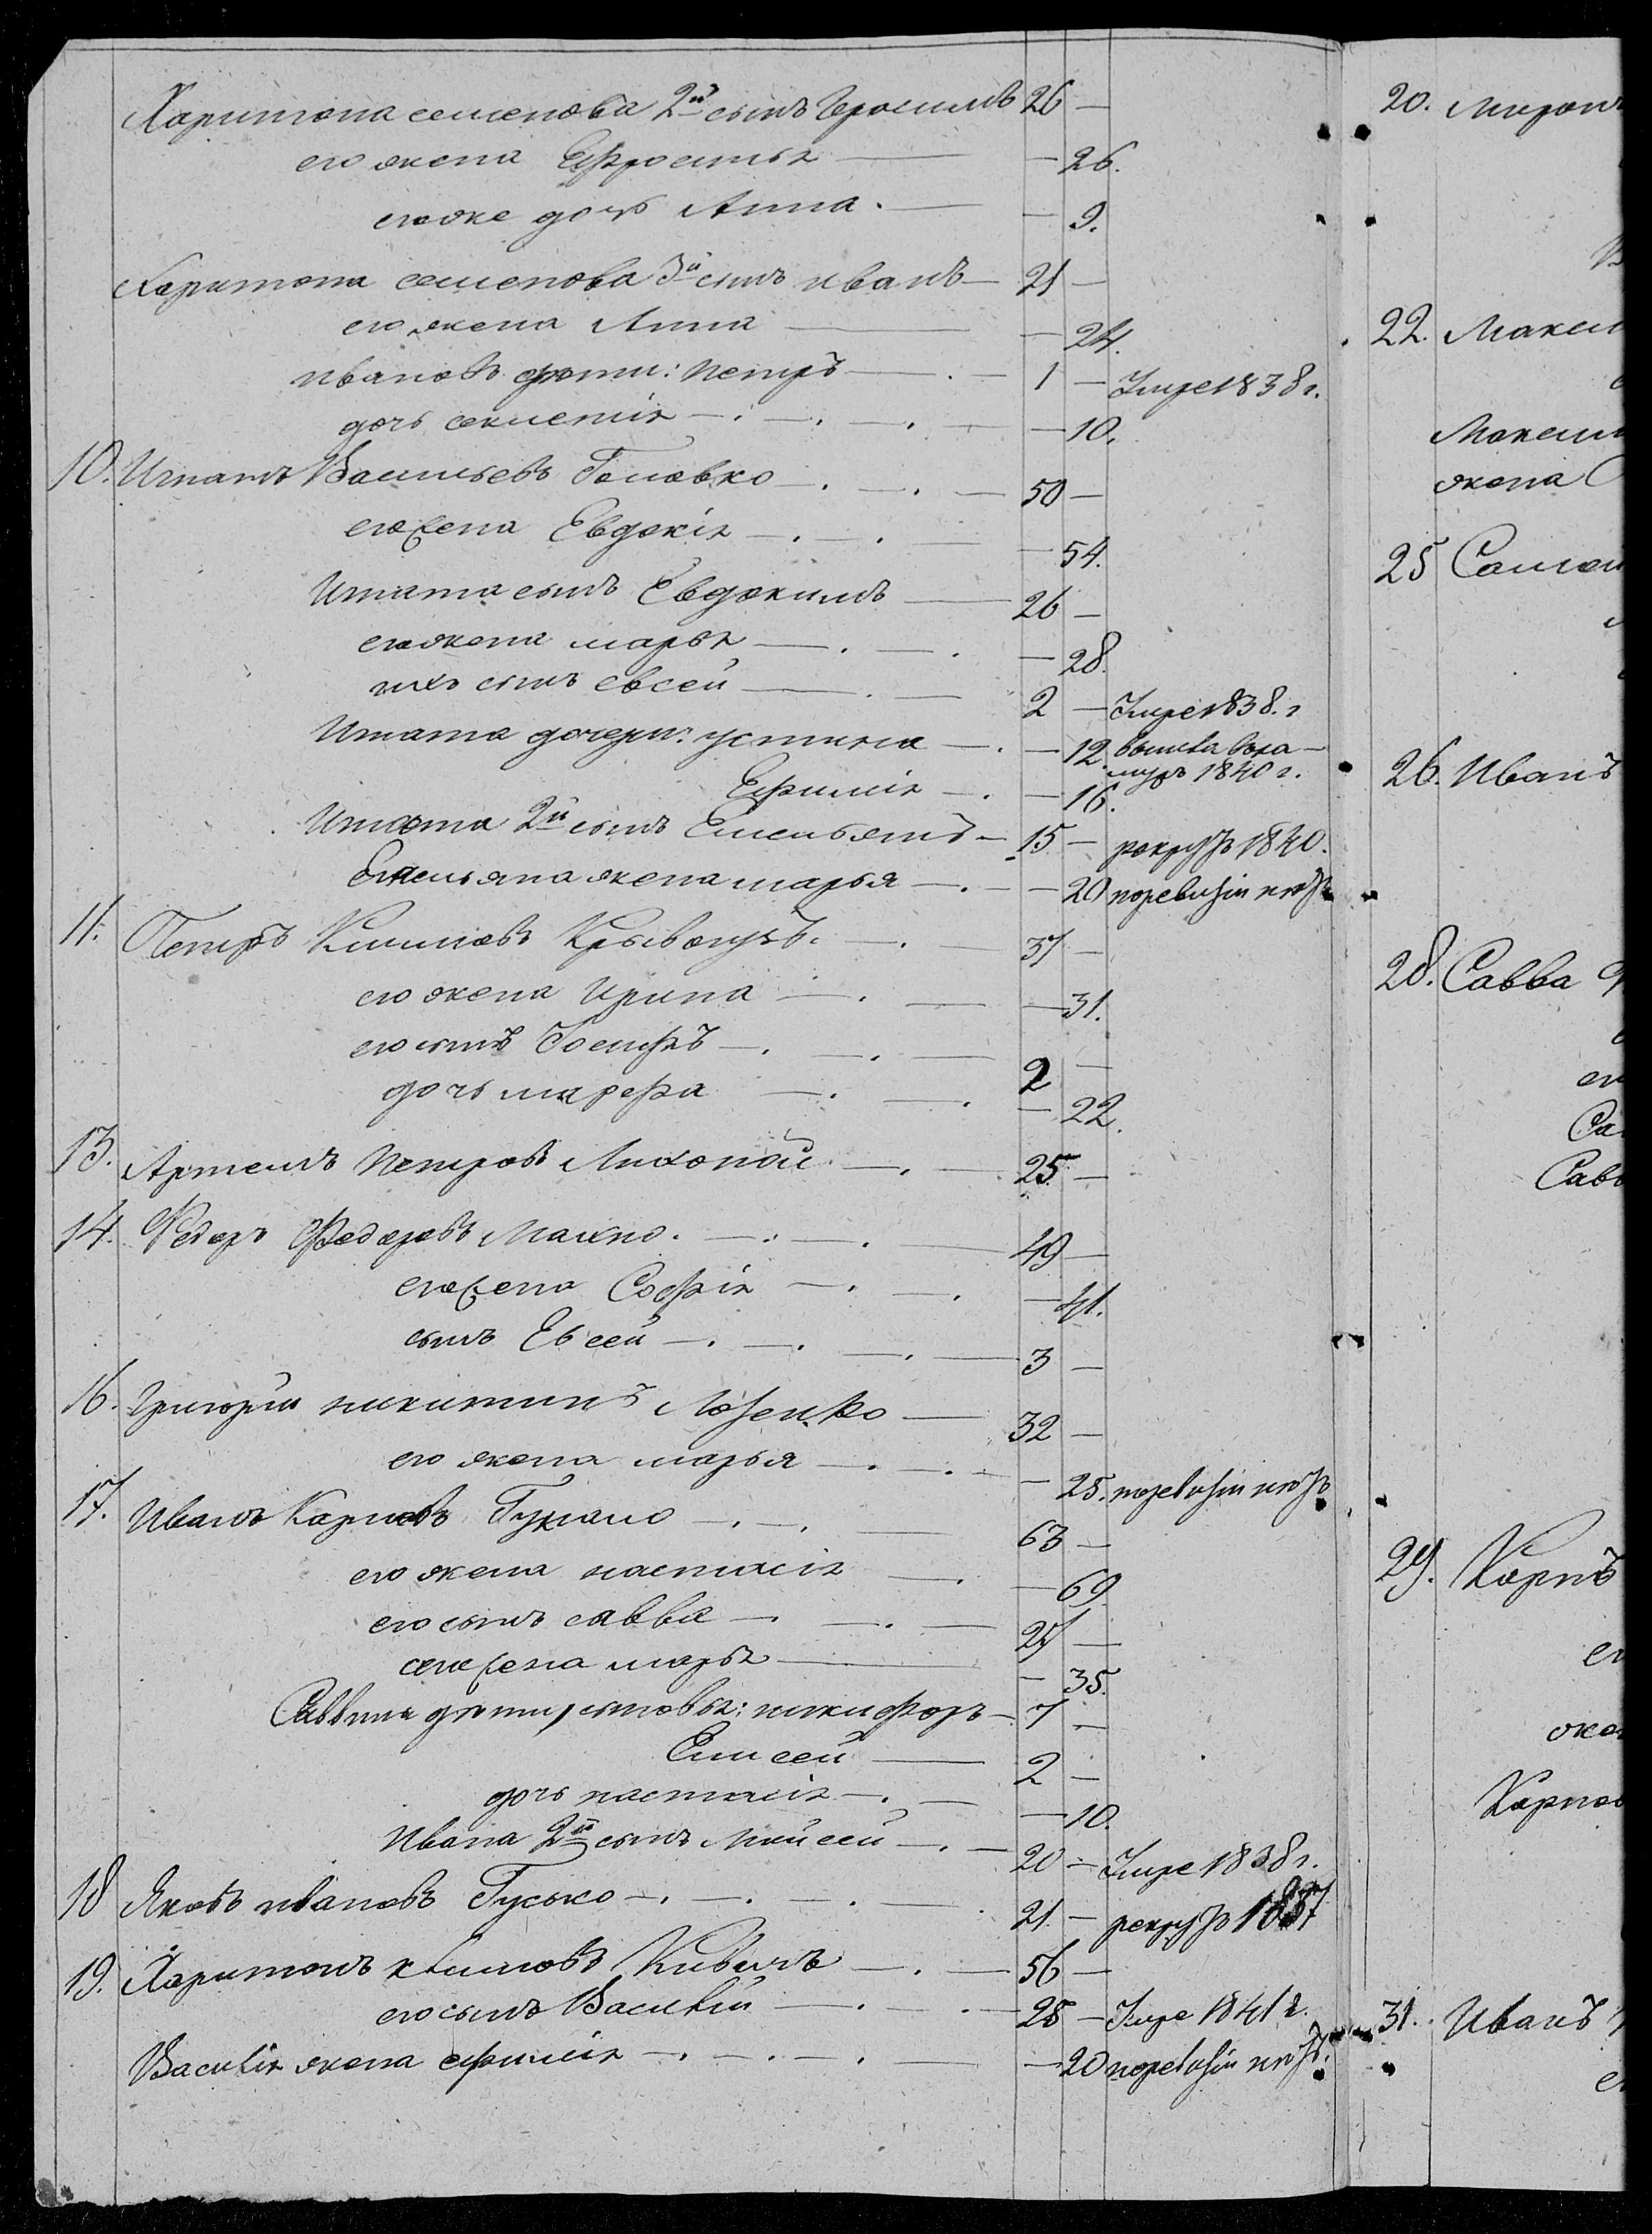 Харитона семенова 2й сынъ Герасимъ 26 —
его жена Ефросинья — 26.
его же дочь Анна. — 9.
Харитона семенова 3й сынъ иванъ — 21 —
его жена Анна — 24.
ивановъ дѣти: петръ — 1 — Умре 1838 г.
дочь — 10.
10. Игнатъ Васильевъ Головко — 50 —
его жена Евдокія — 54.
Игната сынъ Евдокимъ — 26 —
его жена марья — 28.
ихъ сынъ евсей — 2 — Умре 1838. г
Игната дочери: устинья — 12. вышла въ за-
мужъ 1840 г.
Ефимія — 16.
Игната 2й сынъ Емельянъ — 15 — рекрутъ 1840.
Емельяна жена марья — 20 поревизіи нѣтъ
11. Петръ Климовъ — 37 —
его жена Ирина — 31.
его сынъ Іосифъ — 2 —
дочь марфа — 22.
13. Артемъ Петровъ Лихопой — 25 —
14. Федоръ Федоровъ Махно. — 49 —
его жена Софія — 41.
сынъ Евсей — 3 —
16. Григорій никитинъ Лозенко — 32 —
его жена марья — 25. поревизіи нѣтъ
17. Иванъ Карповъ — 63 —
его жена настасія — 69
его сынъ савва — 27 —
его жена марья — 35.
Саввина дѣти, сыновья: никифоръ — 7 —
Елисей — 2 —
дочь настасія — 10.
Ивана 2й сынъ Мойсей — 20 — Умре 1838 г.
18 Яковъ ивановъ Гусько — 21. — рекрутъ 1837
19. Харитонъ климовъ — 56 —
его сынъ Василій — 28 — Умре 1841 г.
Василія жена ефимія — 20 поревизіи нѣтъ.
20. миронъ
22. Макси
Максим
жена
25 Самой
26. Иванъ
28. Савва
ег
Са
Савв
29. Карпъ
ег
жен
Карпов
31. Иванъ